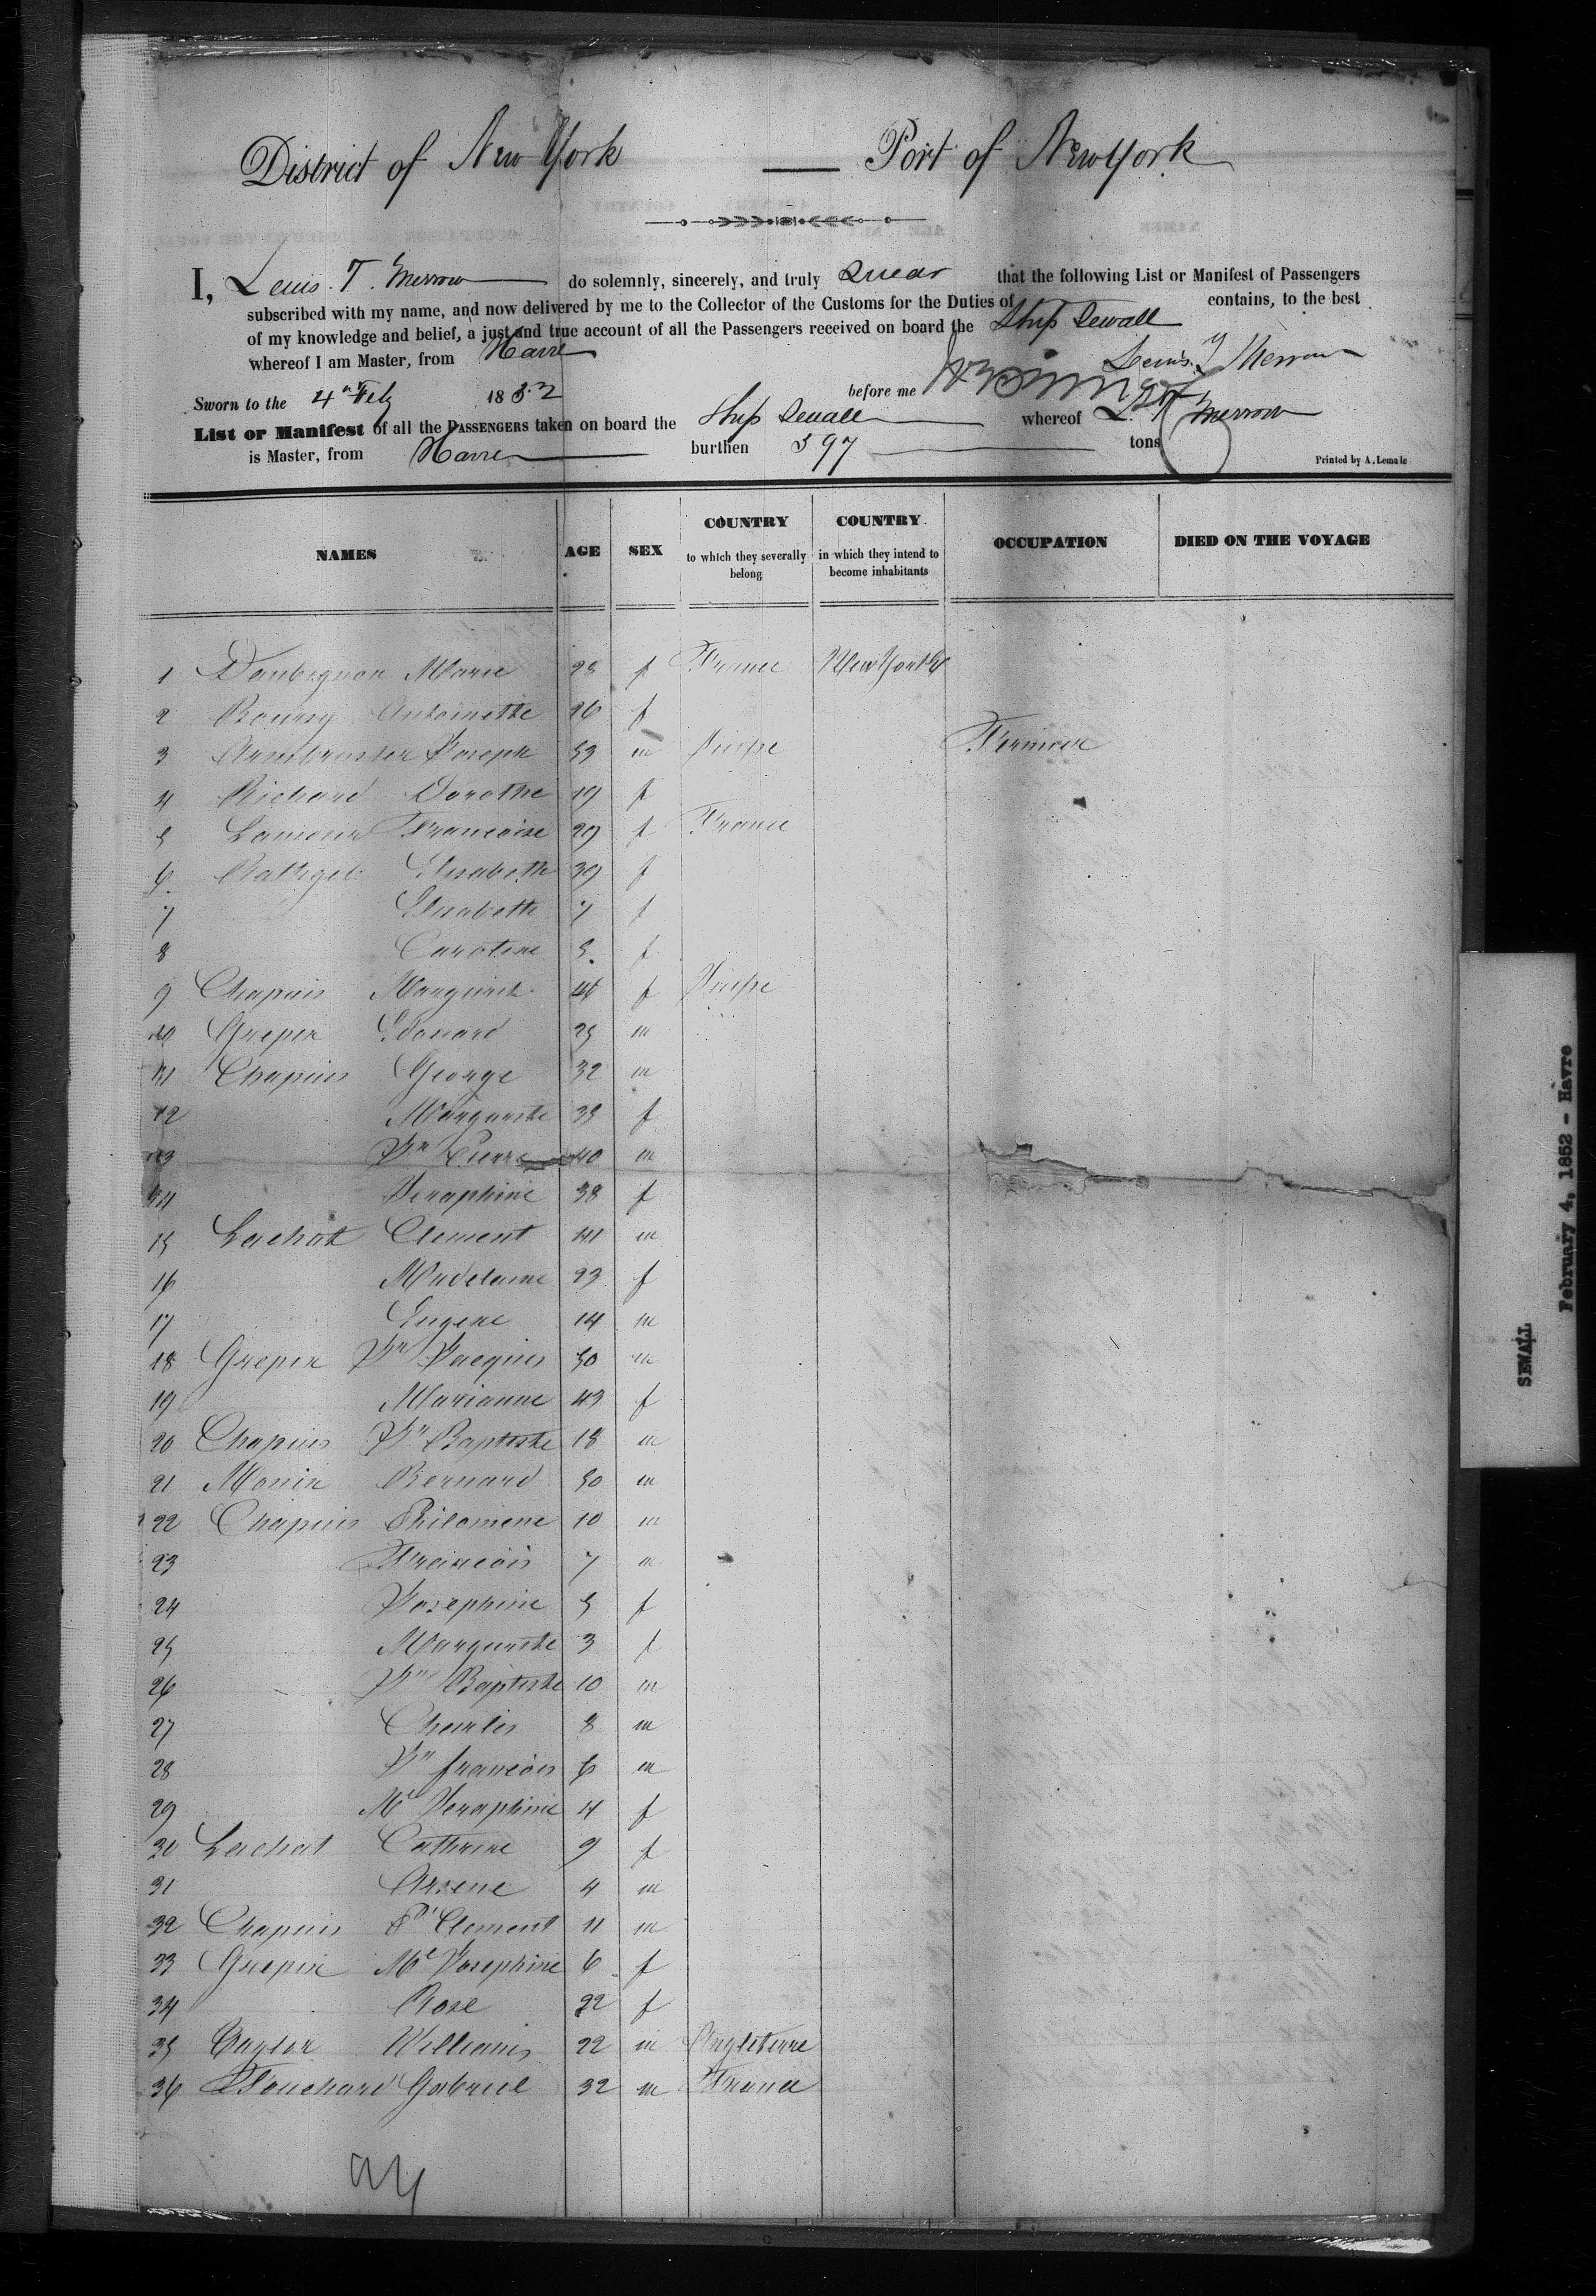 District of New York — Port of New York
I, Lewis. T. Merrow do solemnly, sincerely, and truly swear that the following List or Manifest of Passengers
subscribed with my name, and now delivered by me to the Collector of the Customs for the Duties of contains, to the best
of my knowledge and belief, a just and true account of all the Passengers received on board the Ship Sewall
whereof I am Master, from Havre
Lewis. T Merrow
Sworn to the 4 Feby 1852 before me
List or Manifest of all the PASSENGERS taken on board the Ship Sewall whereof L. T. Merrow
is Master, from Havre burthen 597 tons
Printed by A. Lemale
NAMES AGE SEX COUNTRY to which they severally belong COUNTRY in which they intend to become inhabitants OCCUPATION DIED ON THE VOYAGE
1 Marie 25 f France New York
2 Antoinette 26 f
3 Armbruster Joseph 53 m Suisse
4 Richard Dorothe 19 f
5 Francoise 29 f France
6 Rathgeb Elisabeth 39 f
7 Elisabeth 7 f
8 Caroline 5. f
9 Chapuis f Suisse
10 Grepin Edouard 25 m
11 Chapuis George 32 m
12 Marguerite 35 f
13 Jn Pierre 40 m
14 Seraphine 38 f
15 Lachat Clement 41 m
16 Madelaine 23 f
17 Eugene 14 m
18 Grepin Jn Jacques 50 m
19 Marianne 43 f
20 Chapuis Jn Baptiste 18 m
21 Monin Bernard 50 m
22 Chapuis Philomene 10 m
23 Francois 7 m
24 Josephine 5 f
25 Marguerite 3 f
26 Jn Baptiste 10 m
27 Charles 8 m
28 Jn francois 6 m
29 Me Seraphine 4 f
30 Lachat Cathrine 9 f
31 Arsene 4 m
32 Chapuis Clement 11 m
33 Grepin Me Josephine 6 f
34 Rose 22 f
35 William 22 m Angleterre
36 Gabriel 32 m France
SEWALL
February 4, 1852 - Havre